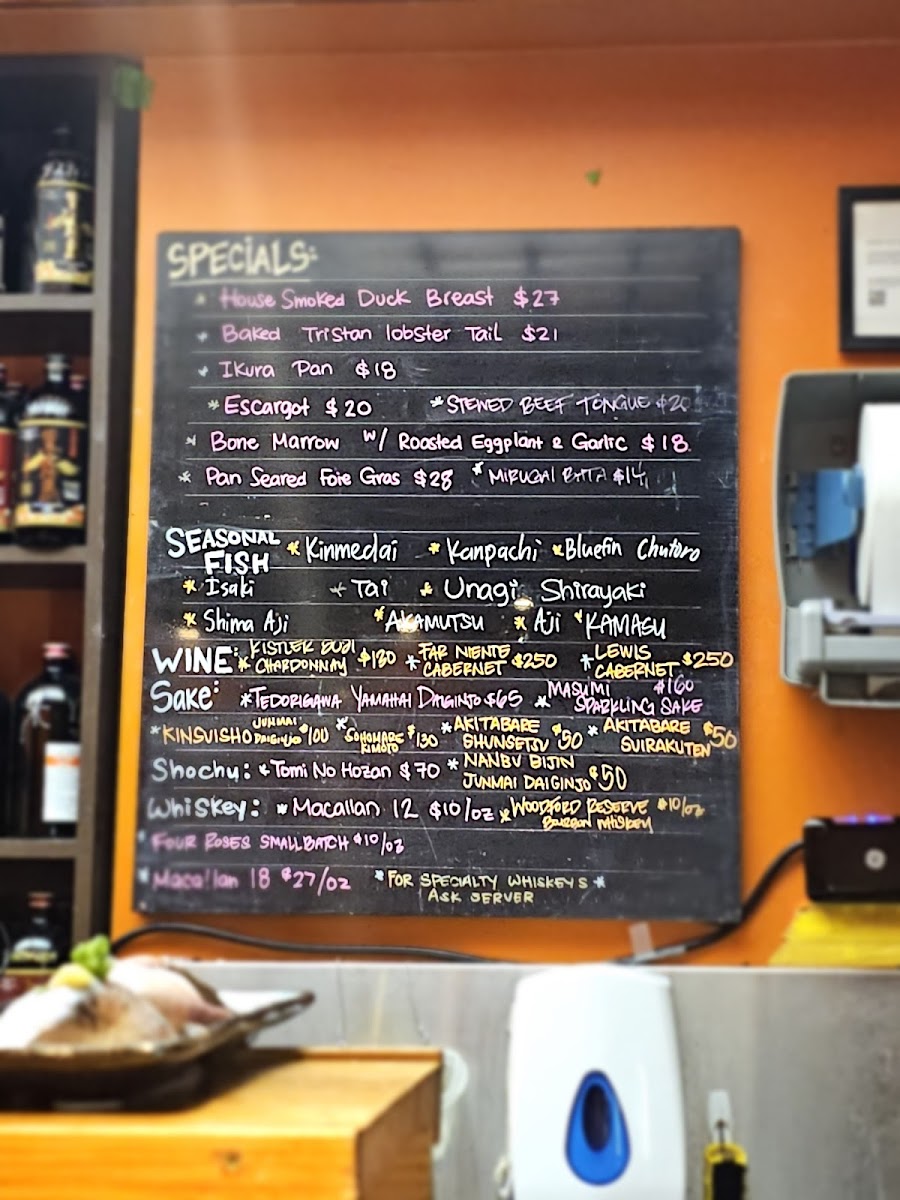 SPECIALS:
* House Smoked Duck Breast $27
* Baked Tristan lobster Tail $21
* Ikura Pan $18
* Escargot $20 * STEWED BEEF TONGUE $20
* Bone Marrow w/ Roasted Eggplant & Garlic $18
* Pan Seared Foie Gras $28 * MIRUGAI $14
SEASONAL FISH * Kinmedai * Kanpachi * Bluefin Chutoro
* Isaki * Tai * Unagi Shirayaki
* Shima Aji * AKAMUTSU * Aji * KAMASU
WINE: * KISTLER CHARDONNAY $130 * FAR NIENTE CABERNET $250 * LEWIS CABERNET $250
Sake: * TEDORIGAWA YAMAHAI DAIGINJO $65 * MASUMI SPARKLING SAKE $160
* KINSUISHO JUNMAI DAIGINJO $100 * SOHOMARE KIMOTO $130 * AKITABARE SHUNSETSU $50 * AKITABARE SUIRAKUTEN $50
Shochu: * Tomi No Hozan $70 * NANBU BIJIN JUNMAI DAIGINJO $50
Whiskey: * Macallan 12 $10/oz * WOODFORD RESERVE Bourbon WHISKEY $10/oz
FOUR ROSES SMALL BATCH $10/oz
* Macallan 18 $27/oz * FOR SPECIALTY WHISKEYS *
ASK SERVER